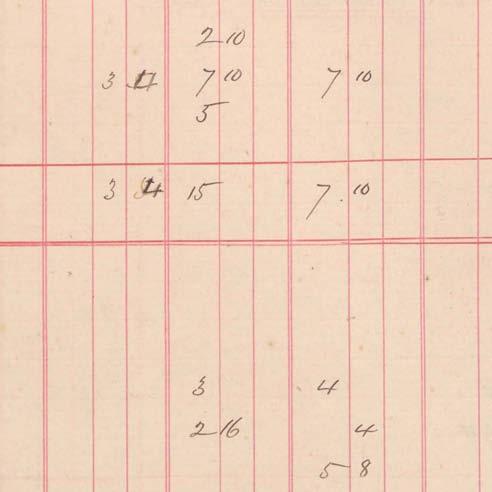 2 10
3 4 7 10 7 10
5
3 4 15 7. 10
3 4
2 16 4
5 8